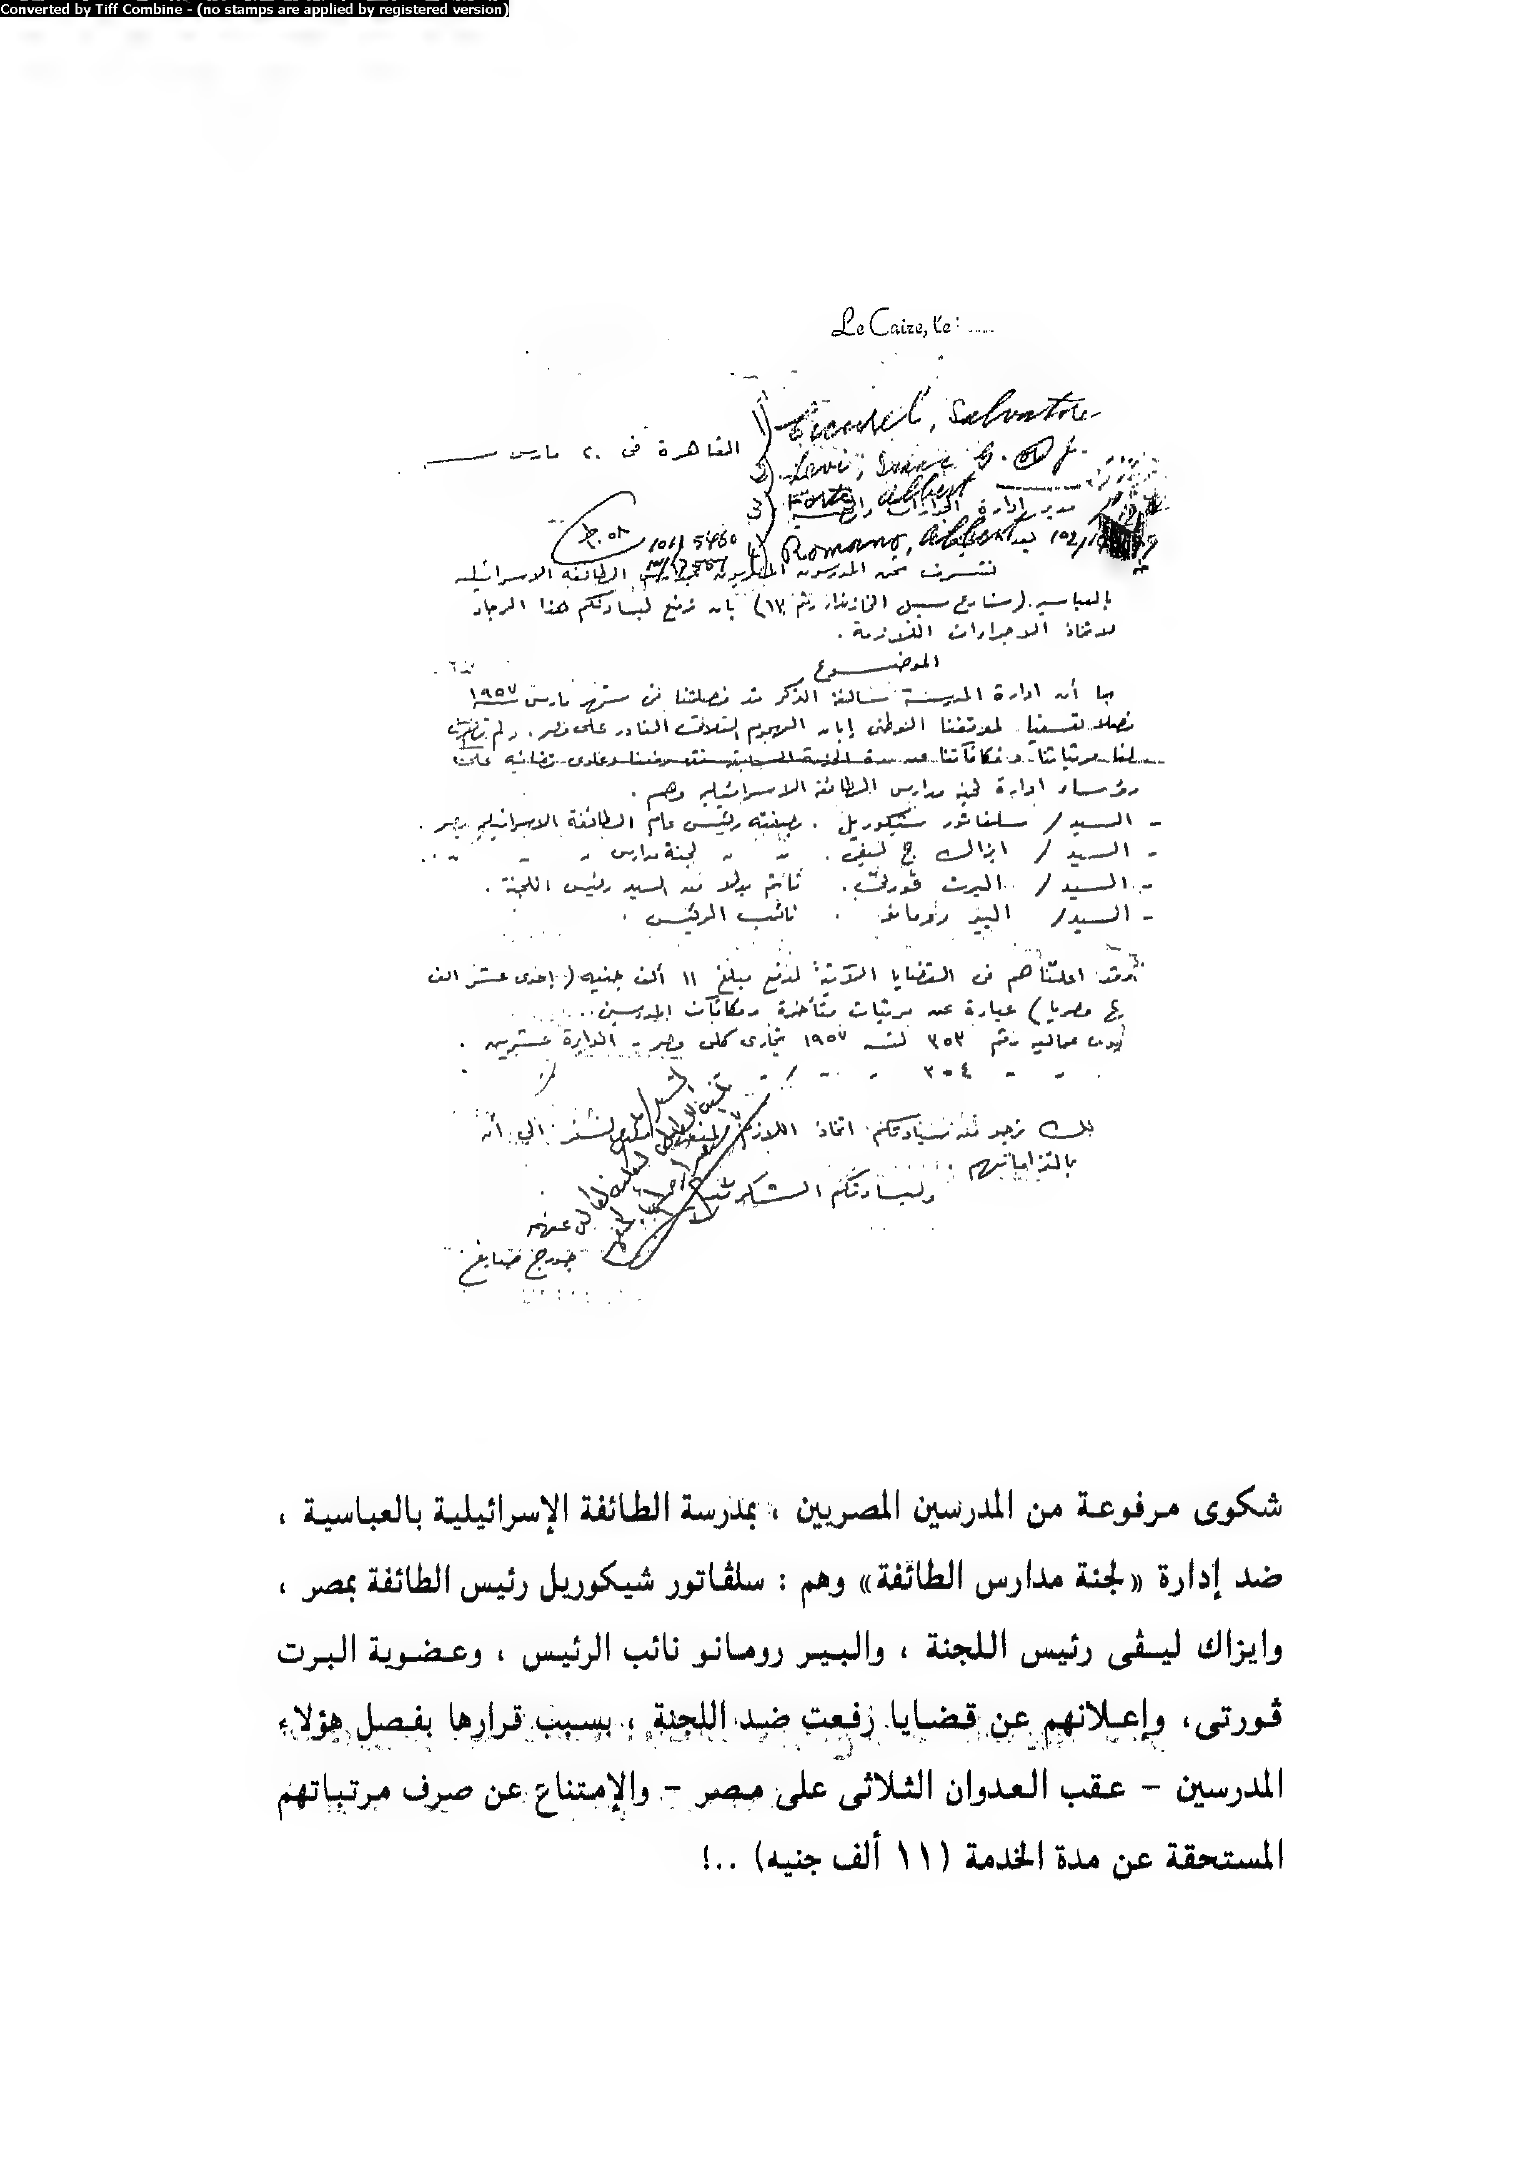 Converted by Tiff Combine - (no stamps are applied by registered version)
Le Caire, le : .....
1) Salvatore
القاهرة فى ٢٠ مارس
2) Levi,
3) Forte Albert
مدير إدارة الجوازات
101/5460
4) Romano, Albert
نتشرف نحن المدرسون المصريون الطائفة الاسرائيلية
بالعباسية (شارع سبيل الخازندار رقم ١٧) بان نرفع لسيادتكم هذا الرجاء
لاتخاذ الاجراءات اللازمة .
الموضوع
بما أن ادارة المدرسة سالفة الذكر قد فصلتنا فى شهر مارس ١٩٥٧
فصلا تعسفيا لموقفنا الوطنى إبان الهجوم الثلاثى الغادر على مصر . ولم
لنا مرتباتنا ومكافآتنا عن مدة الخدمة قضائيه على
رؤساء ادارة لجنة مدارس الطائفة الاسرائيلية وهم .
- السيد / سلفاتور شيكوريل . بصفته رئيس عام الطائفة الاسرائيلية بمصر .
- السيد / ايزاك ج ليفى . " " لجنة مدارس " " "
- السيد / البرت فورتى . قائم بدلا من السيد رئيس اللجنة .
- السيد / البير رومانو . نائب الرئيس .
وقد اعلناهم فى القضايا الآتية لدفع مبلغ ١١ ألف جنيه (إحدى عشر الف
مصريا) عبارة عن مرتبات متأخرة ومكافآت المدرسين .
عماليه رقم ٣٥٣ لسنة ١٩٥٧ تجارى كلى مصر - الدايرة عشرين .
" " ٣٥٤ " " / "
نرجو من سيادتكم اتخاذ اللازم الى أن
بالتزاماتهم .
ولسيادتكم الشكر
عنهم
جورج صايغ
شكوى مرفوعة من المدرسين المصريين ، بمدرسة الطائفة الإسرائيلية بالعباسية ،
ضد إدارة «لجنة مدارس الطائفة» وهم : سلڤاتور شيكوريل رئيس الطائفة بمصر ،
وايزاك ليڤى رئيس اللجنة ، والبير رومانو نائب الرئيس ، وعضوية البرت
ڤورتى، وإعلانهم عن قضايا رفعت ضد اللجنة ، بسبب قرارها بفصل هؤلاء
المدرسين - عقب العدوان الثلاثى على مصر - والإمتناع عن صرف مرتباتهم
المستحقة عن مدة الخدمة (١١ ألف جنيه) ..!